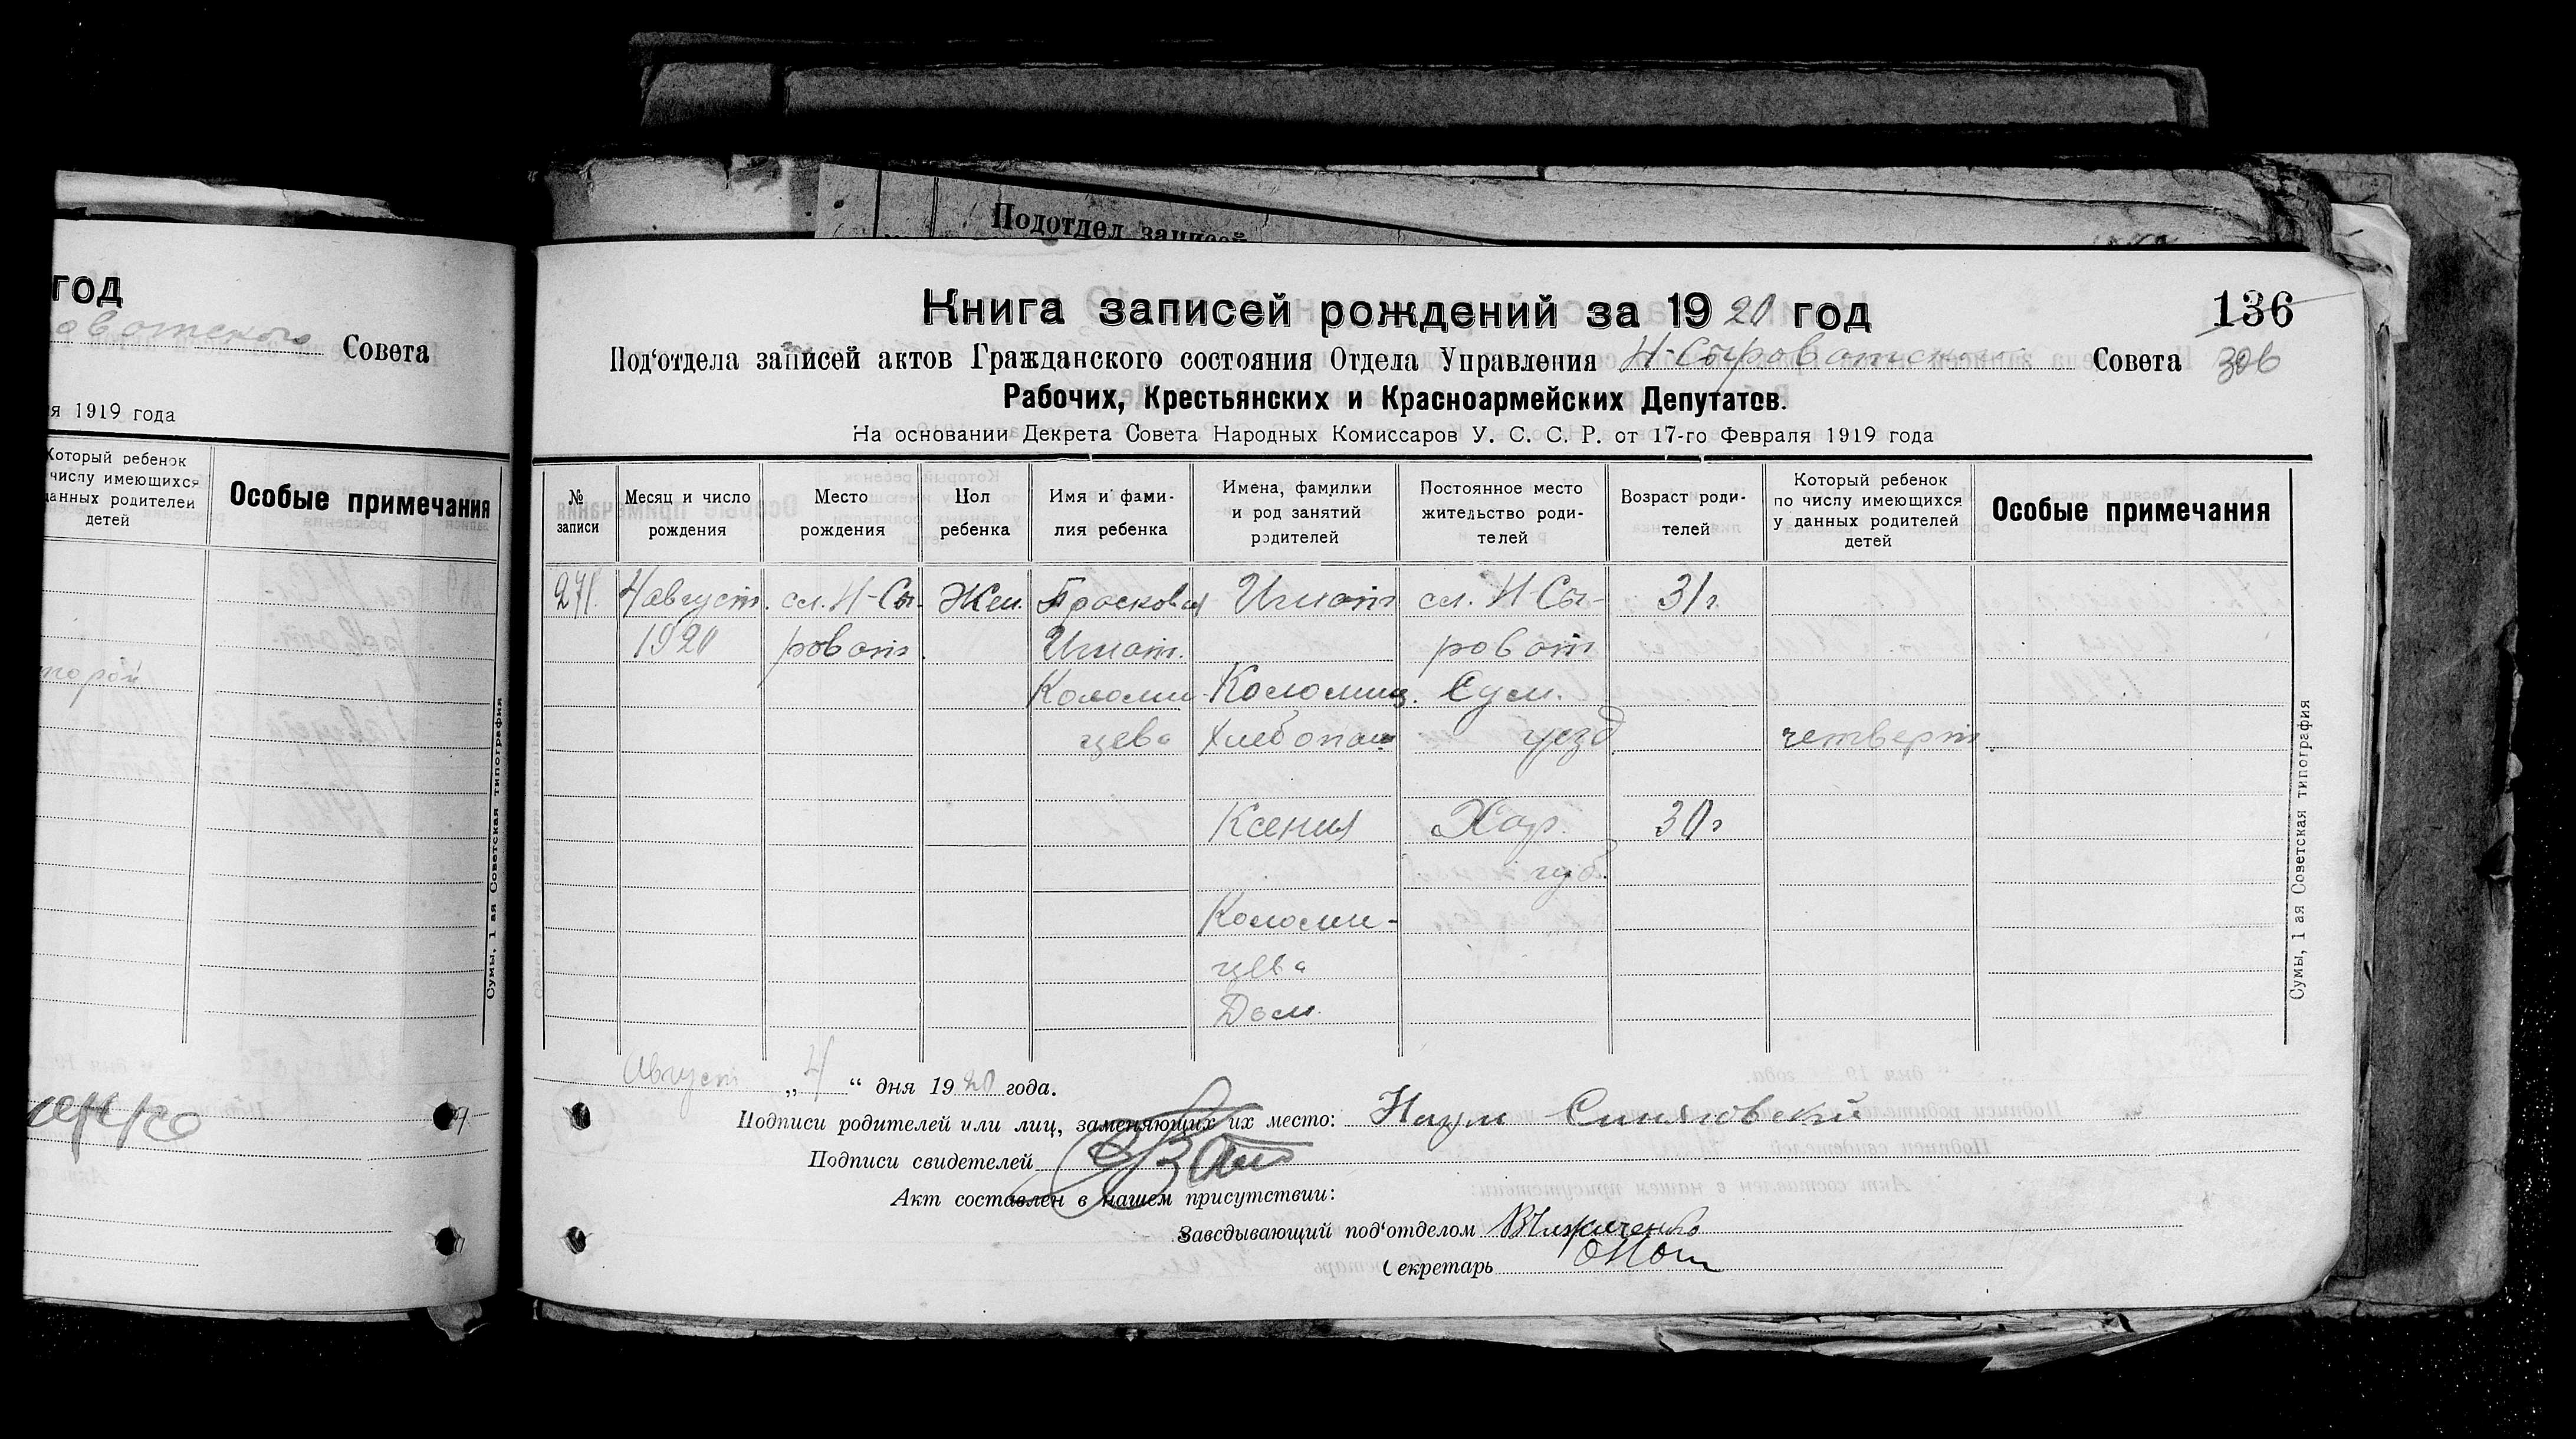 Подотдел записей
год
овотского Совета
я 1919 года
Который ребенок
числу имеющихся
данных родителей
детей
Особые примечания
торой
Сумы, 1 ая Советская типография
Книга записей рождений за 1920 год
136
306
Под'отдела записей актов Гражданского состояния Отдела Управления Н-Сыроватского Совета
Рабочих, Крестьянских и Красноармейских Депутатов.
На основании Декрета Совета Народных Комиссаров У. С. С. Р. от 17-го Февраля 1919 года
№ записи
Месяц и число рождения
Место рождения
Пол ребенка
Имя и фами-
лия ребенка
Имена, фамилии
и род занятий
родителей
Постоянное место
жительство роди-
телей
Возраст роди-
телей
Который ребенок
по числу имеющихся
у данных родителей
детей
Особые примечания
271. 4 август. сл. Н-Сы- Жен. Прасковья Игнат сл. Н-Сы- 31 г
1920 роват. Игнат. роват
Коломий- Коломиец. Сум.
цева Хлебопаш. уезд. четверт.
Ксения Хар. 30 г
губ.
Коломи-
цева
Дом.
Август „4“ дня 1920 года.
Подписи родителей или лиц, заменяющих их место: Наум
Подписи свидетелей
Акт составлен в нашем присутствии:
Заведывающий под'отделом
Секретарь
Сумы, 1 ая Советская типография